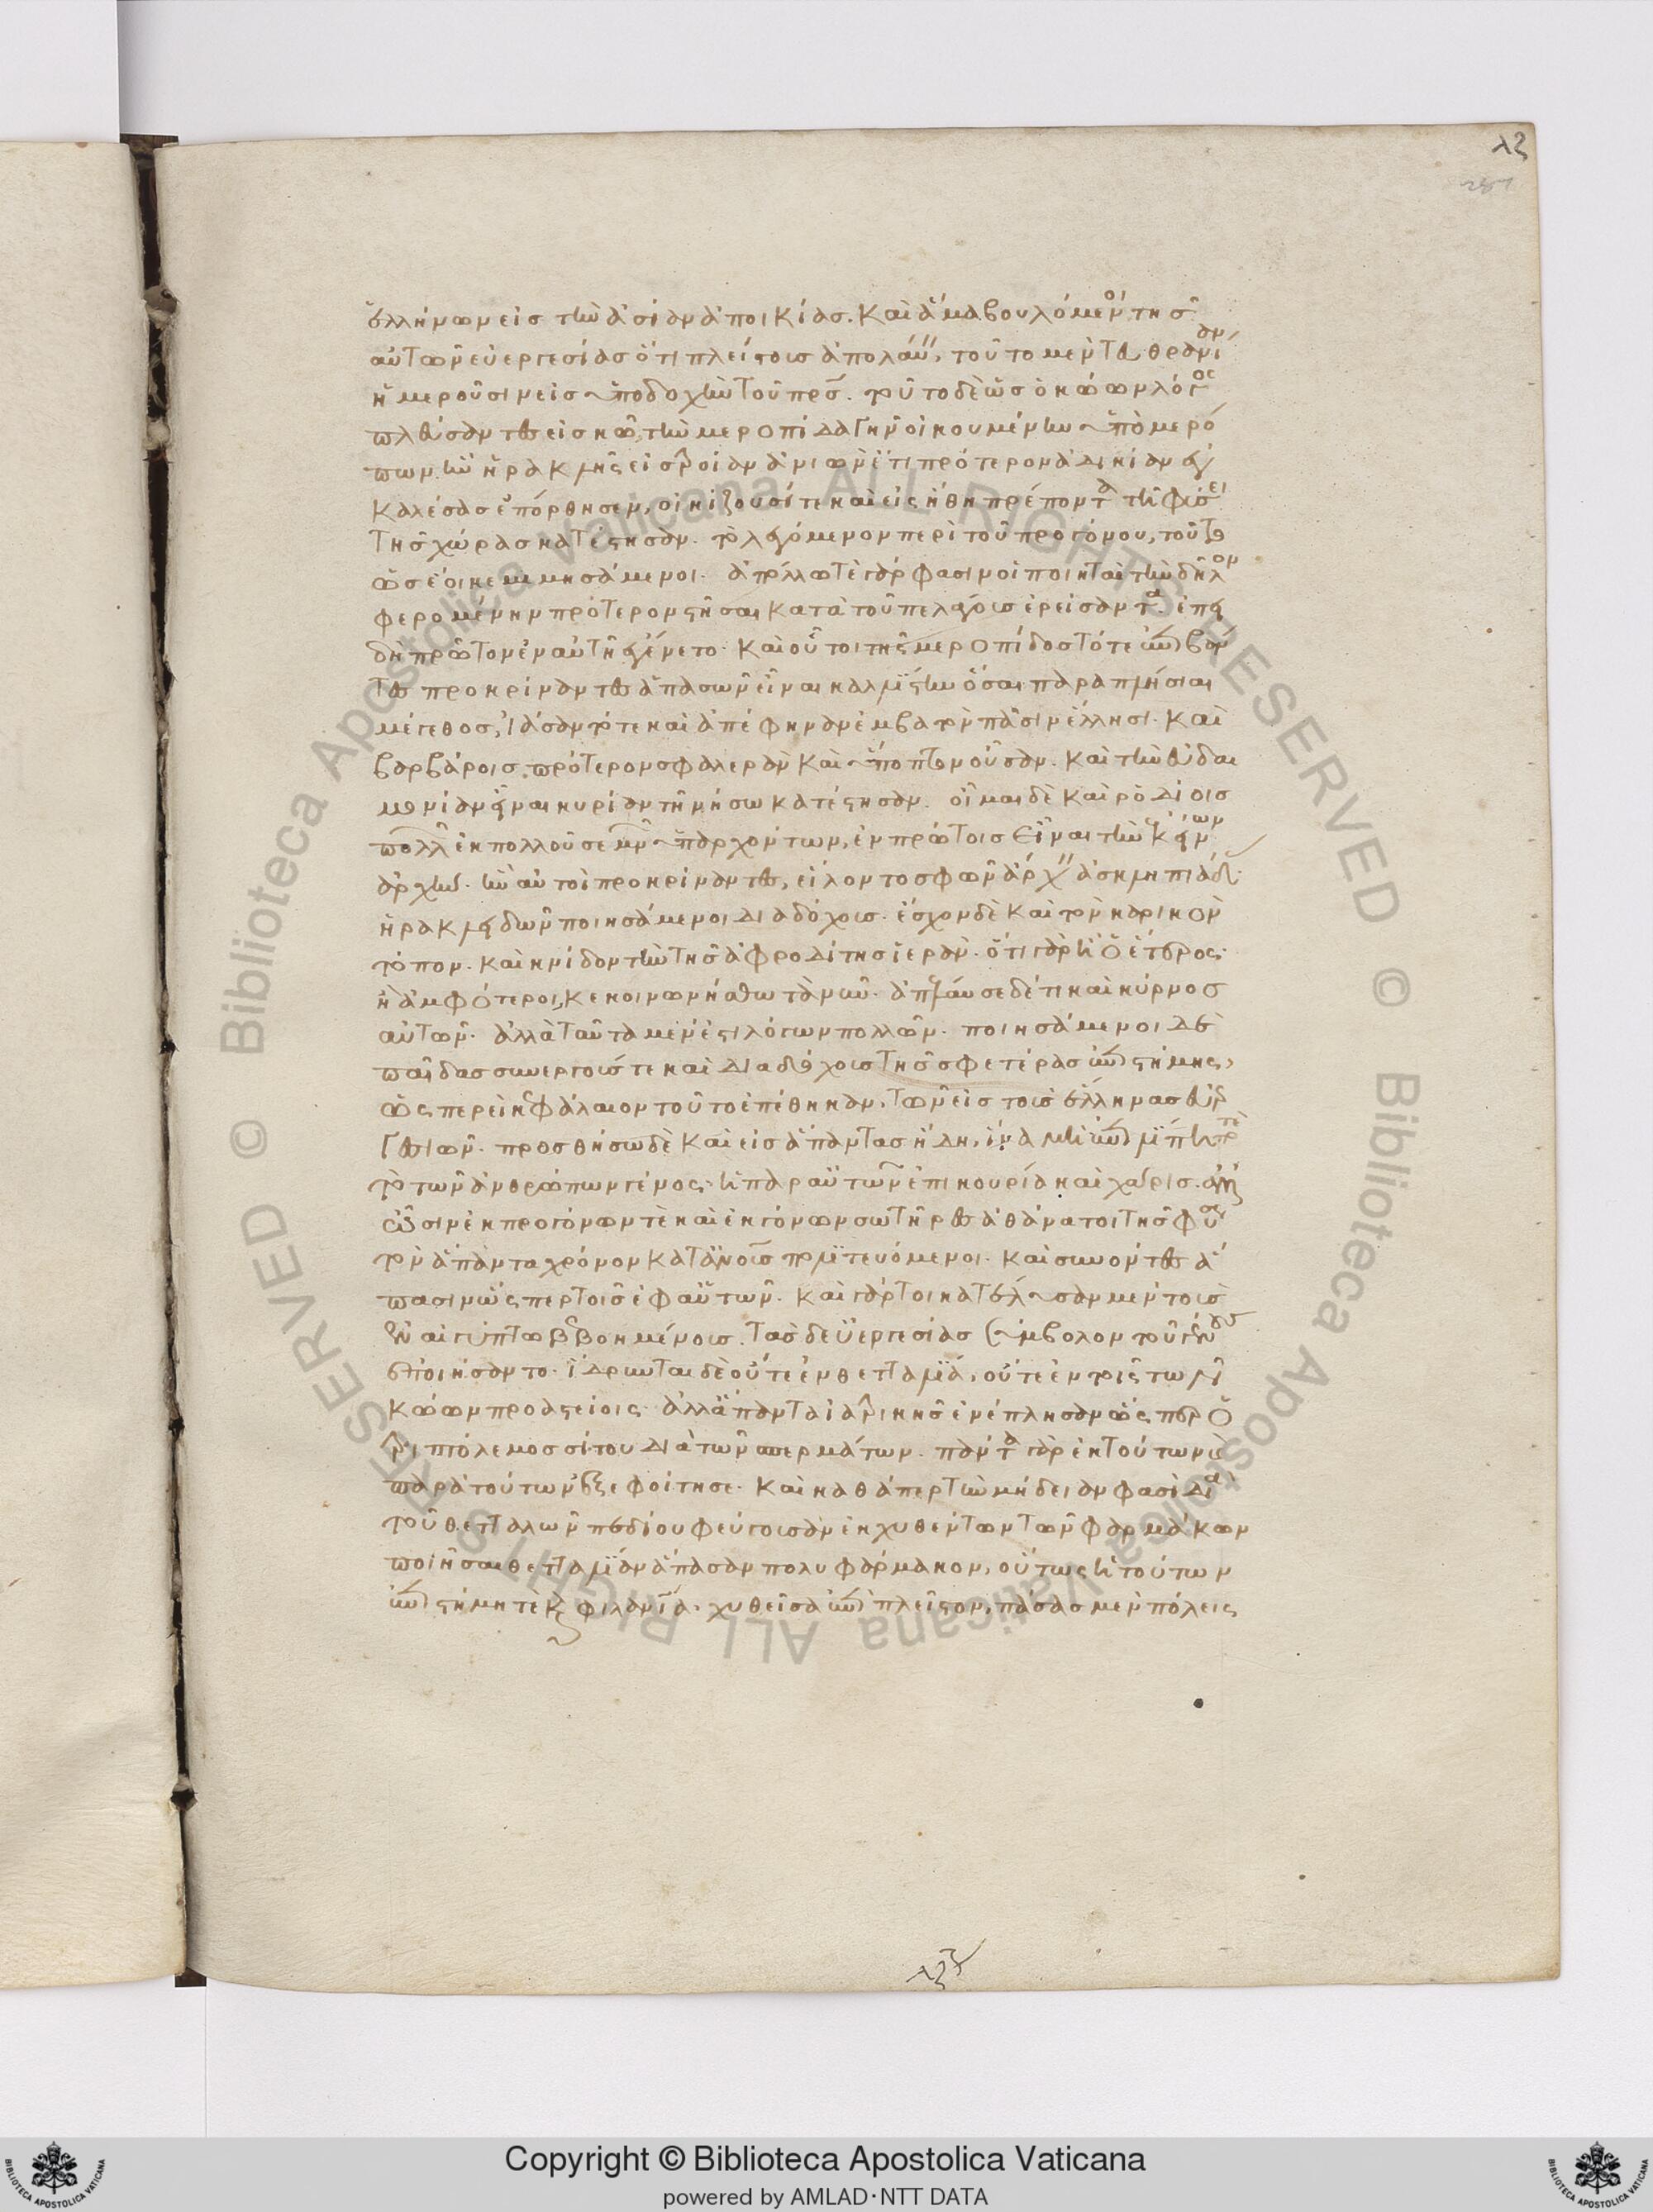 λζ
ἑλλήνων εἰς τὴν ἀσίαν ἀποικίας. καὶ ἅμα βουλόμενοι τῆς
αὑτῶν εὐεργεσίας ὅτι πλείστους ἀπολαύειν, τοῦτο μὲν
ἡμεροῦσιν εἰς ὑποδοχὴν τοῦ πατρός. τοῦτο δὲ ὡς ὁ κώων λόγος
πλεύσαντες εἰς κῶ, τὴν μεροπίδα γῆν οἰκουμένην ὑπὸ μερό
πων ἣν ἡρακλῆς εἰς τροίαν ἀνιὼν ἔτι πρότερον ἀδικίαν ἐγ
καλέσας ἐπόρθησεν, οἰκίζουσί τε καὶ εἰς ἤθη πρέποντα τῇ φύσει
τῆς χώρας κατέστησαν. τὸ λεγόμενον περὶ τοῦ προγόνου, τοῦτο
ὡς ἔοικε μιμησάμενοι. ἀπόλλω τε γάρ φασιν οἱ ποιηταὶ τὴν δῆλον
φερομένην πρότερον στῆσαι κατὰ τοῦ πελάγους ἐρείσαντα ἐπει
δὴ πρῶτον ἐν αὐτῇ ἐγένετο. καὶ οὗτοι τῆς μεροπίδος τότε ἐπιβάν
τες προκρίναντες ἁπασῶν εἶναι καλλίστην ὅσαι παραπλήσιαι
μέγεθος, ἰάσαντό τε καὶ ἀπέφηναν ἐμβατὸν πᾶσιν ἕλλησι καὶ
βαρβάροις, πρότερον σφαλερὰν καὶ ὕποπτον οὖσαν. καὶ τὴν εὐδαι
μονίαν εἶναι κυρίαν τῇ νήσω κατέστησαν. οἶμαι δὲ καὶ ῥοδίοις
πολλῶν ἐκ πολλοῦ σεμνῶν ὑπαρχόντων, ἐν πρώτοις εἶναι τὴν ἐκείνων
ἀρχήν. ἣν αὐτοὶ προκρίναντες, εἵλοντο σφῶν ἄρχειν ἀσκληπιάδας
ἡρακλειδῶν ποιησάμενοι διαδόχους. ἔσχον δὲ καὶ τὸν καρικὸν
τόπον. καὶ κνίδον τὴν τῆς ἀφροδίτης ἱεράν. ὅτι γὰρ καὶ ὁ ἕτερος
ἢ ἀμφότεροι, κεκοινωνήσθω τὰ νῦν. ἀπήλαυσε δέ τι καὶ κύρνος
αὐτῶν. ἀλλὰ ταῦτα μέν ἐστι λόγων πολλῶν. ποιησάμενοι δὲ
παῖδας συνεργούς τε καὶ διαδόχους τῆς σφετέρας ἐπιστήμης,
ὥσπερεὶ κεφάλαιον τοῦτο ἐπέθηκαν, τῶν εἰς τοὺς ἕλληνας εὐερ
γεσιῶν. προσθήσω δὲ καὶ εἰς ἅπαντας ἤδη, ἵνα μὴ ἐπιλίπῃ ποτὲ
τὸ τῶν ἀνθρώπων γένος ἡ παρ αὑτῶν ἐπικουρία καὶ χάρις. ἀλλ
ὦσιν ἐκ προγόνων τε καὶ ἐκγόνων σωτῆρες ἀθάνατοι τῆς φύσεως
τὸν ἅπαντα χρόνον κατ ἀνθρώπους πολιτευόμενοι. καὶ συνόντες ἅ
πασιν ὥσπερ τοῖς ἐφ αὑτῶν. καὶ γάρ τοι κατέλυσαν μὲν τοὺς
ἐν αἰγύπτω βεβοημένους. τὰς δ εὐεργεσίας σύμβολον τοῦ γένους
ἐποιήσαντο. ἵδρυνται δὲ οὔτε ἐν θετταλία, οὔτε ἐν τοῖς τῶν
κώων προαστείοις. ἀλλὰ πάντα ἰατρικῆς ἐνέπλησαν ὥσπερ ὁ
τριπτόλεμος σίτου διὰ τῶν σπερμάτων. πάντα γὰρ ἐκ τούτων καὶ
παρὰ τούτων ἐξεφοίτησε. καὶ καθάπερ τὴν μήδειαν φασὶ διὰ
τοῦ θετταλῶν πεδίου φεύγουσαν ἐκχυθέντων τῶν φαρμάκων
ποιῆσαι θετταλίαν ἅπασαν πολυφάρμακον, οὕτως ἡ τούτων
ἐπιστήμη τε καὶ φιλανθρωπία χυθεῖσα ἐπὶ πλεῖστον, πάσας μὲν πόλεις
Copyright © Biblioteca Apostolica Vaticana
powered by AMLAD·NTT DATA